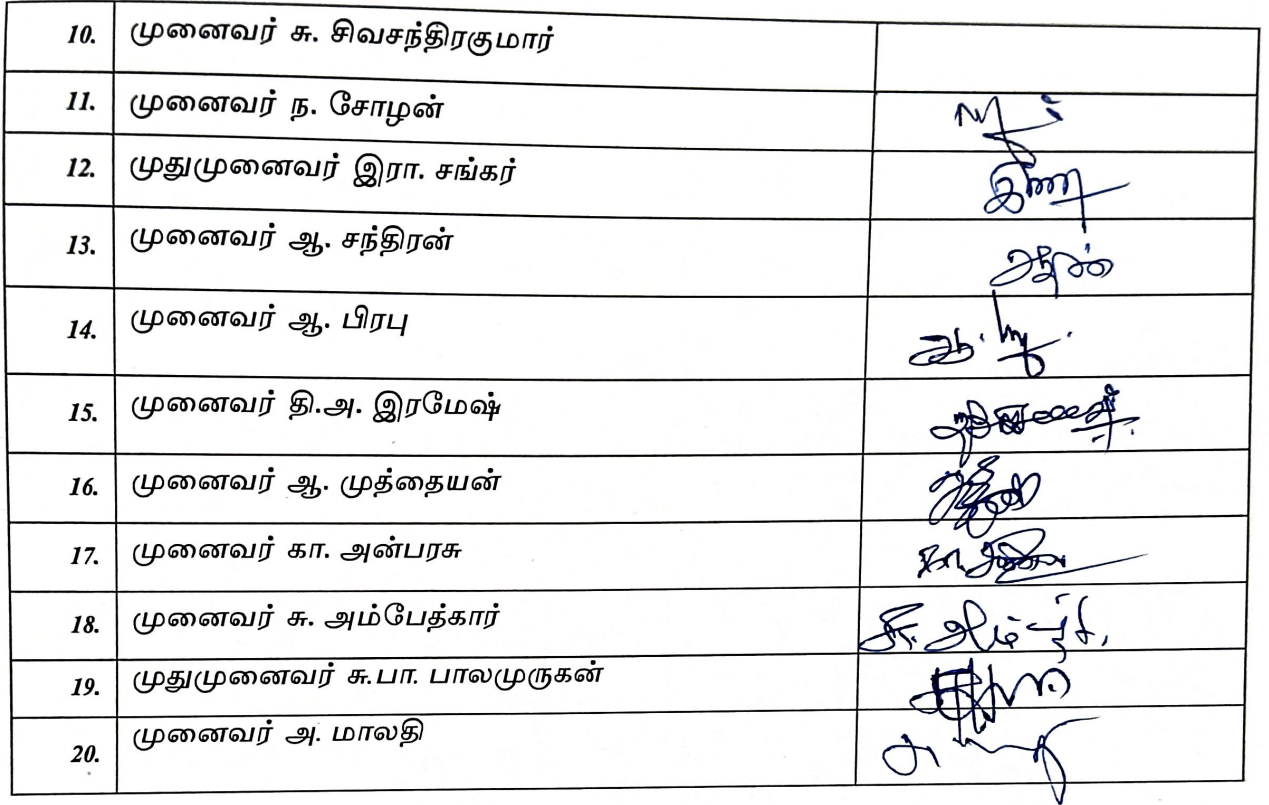 10. முனைவர் சு. சிவசந்திரகுமார்
11. முனைவர் ந. சோழன்
12. முதுமுனைவர் இரா. சங்கர்
13. முனைவர் ஆ. சந்திரன்
14. முனைவர் ஆ. பிரபு
15. முனைவர் தி.அ. இரமேஷ்
16. முனைவர் ஆ. முத்தையன்
17. முனைவர் கா. அன்பரசு
18. முனைவர் சு. அம்பேத்கார்
19. முதுமுனைவர் சு.பா. பாலமுருகன்
20. முனைவர் அ. மாலதி